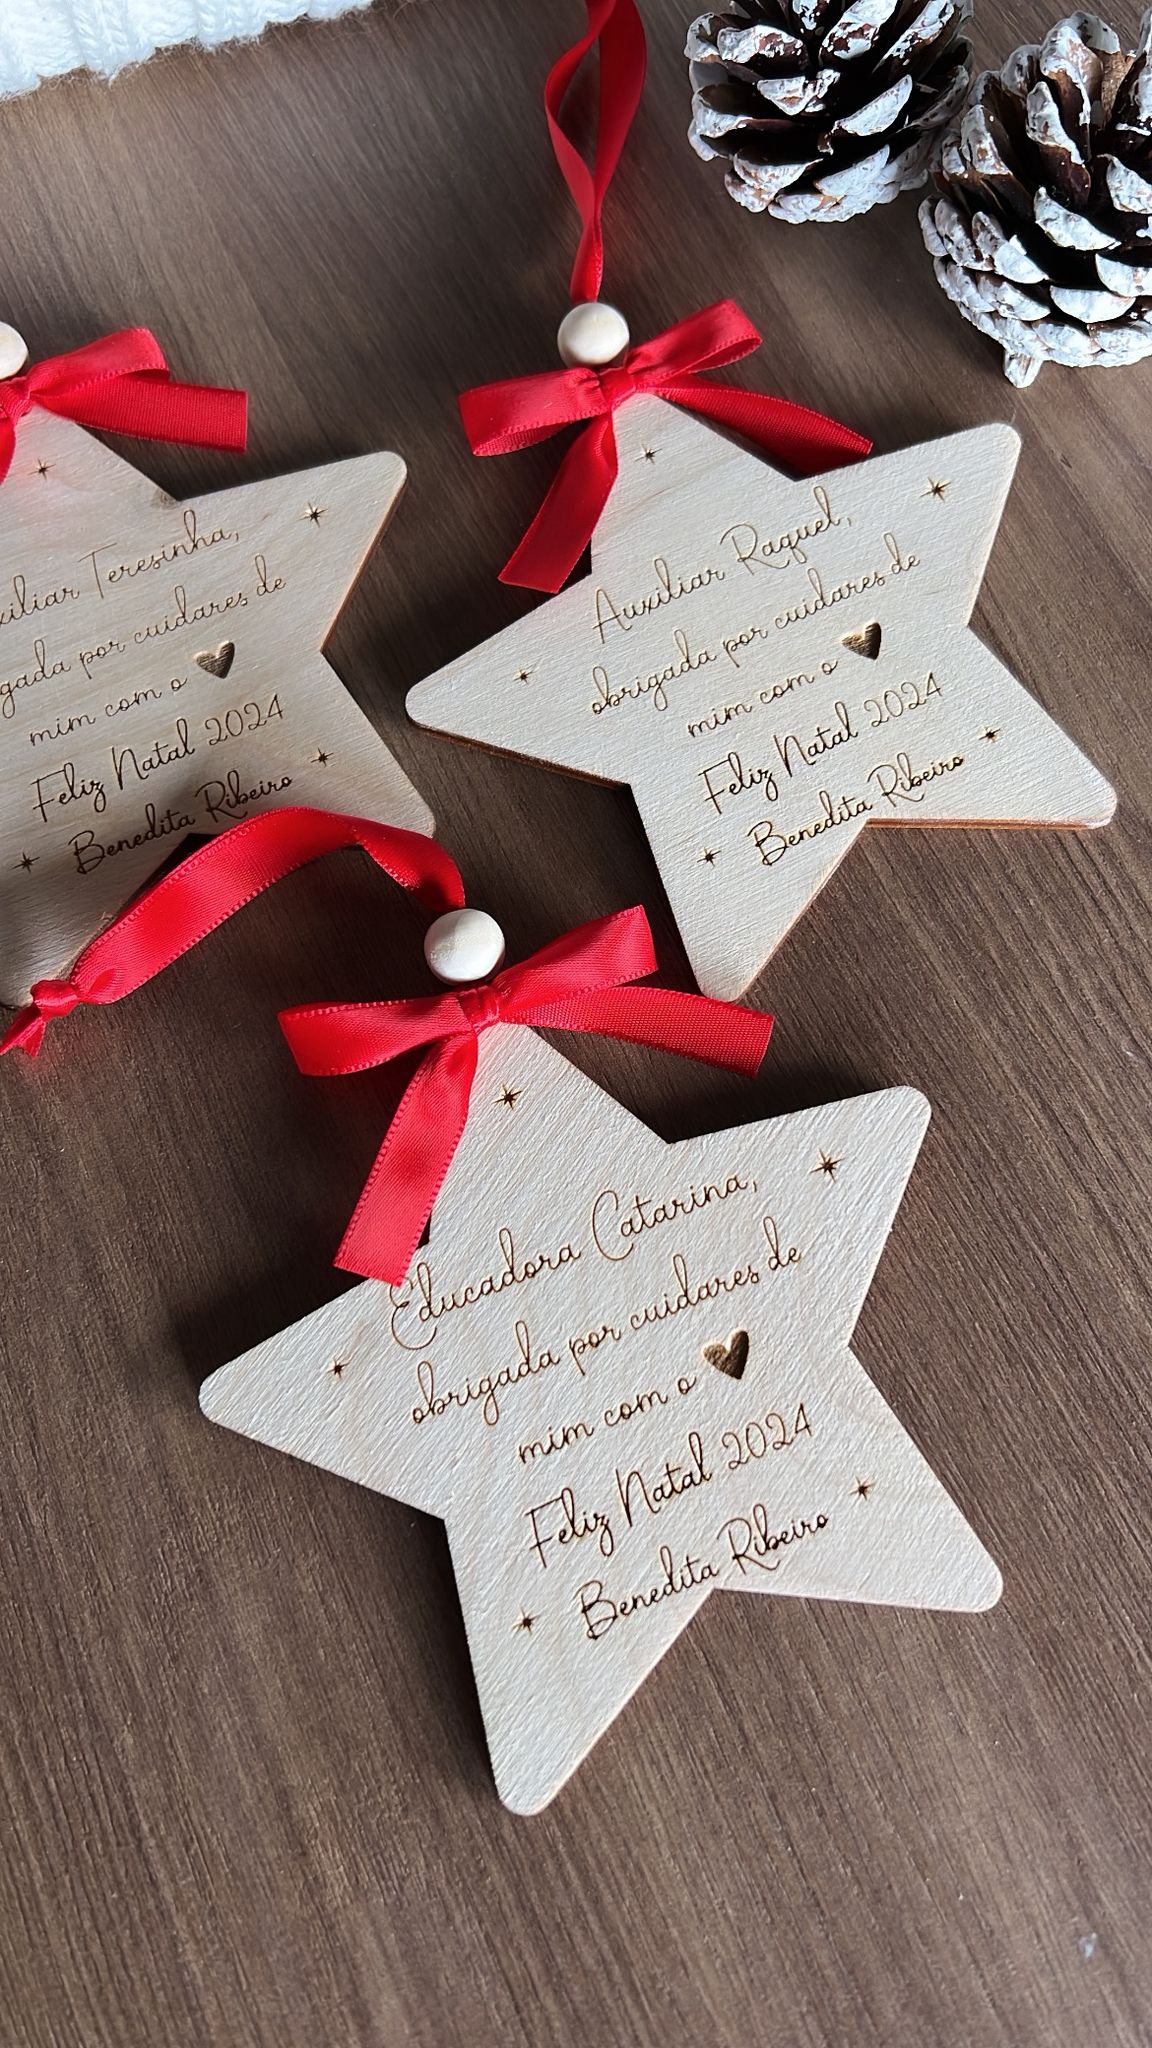 Teresinha,
por cuidares de
mim com o
Feliz Natal 2024
Benedita Ribeiro
Auxiliar Raquel,
obrigada por cuidares de
mim com o
Feliz Natal 2024
Benedita Ribeiro
Educadora Catarina,
obrigada por cuidares de
mim com o
Feliz Natal 2024
Benedita Ribeiro